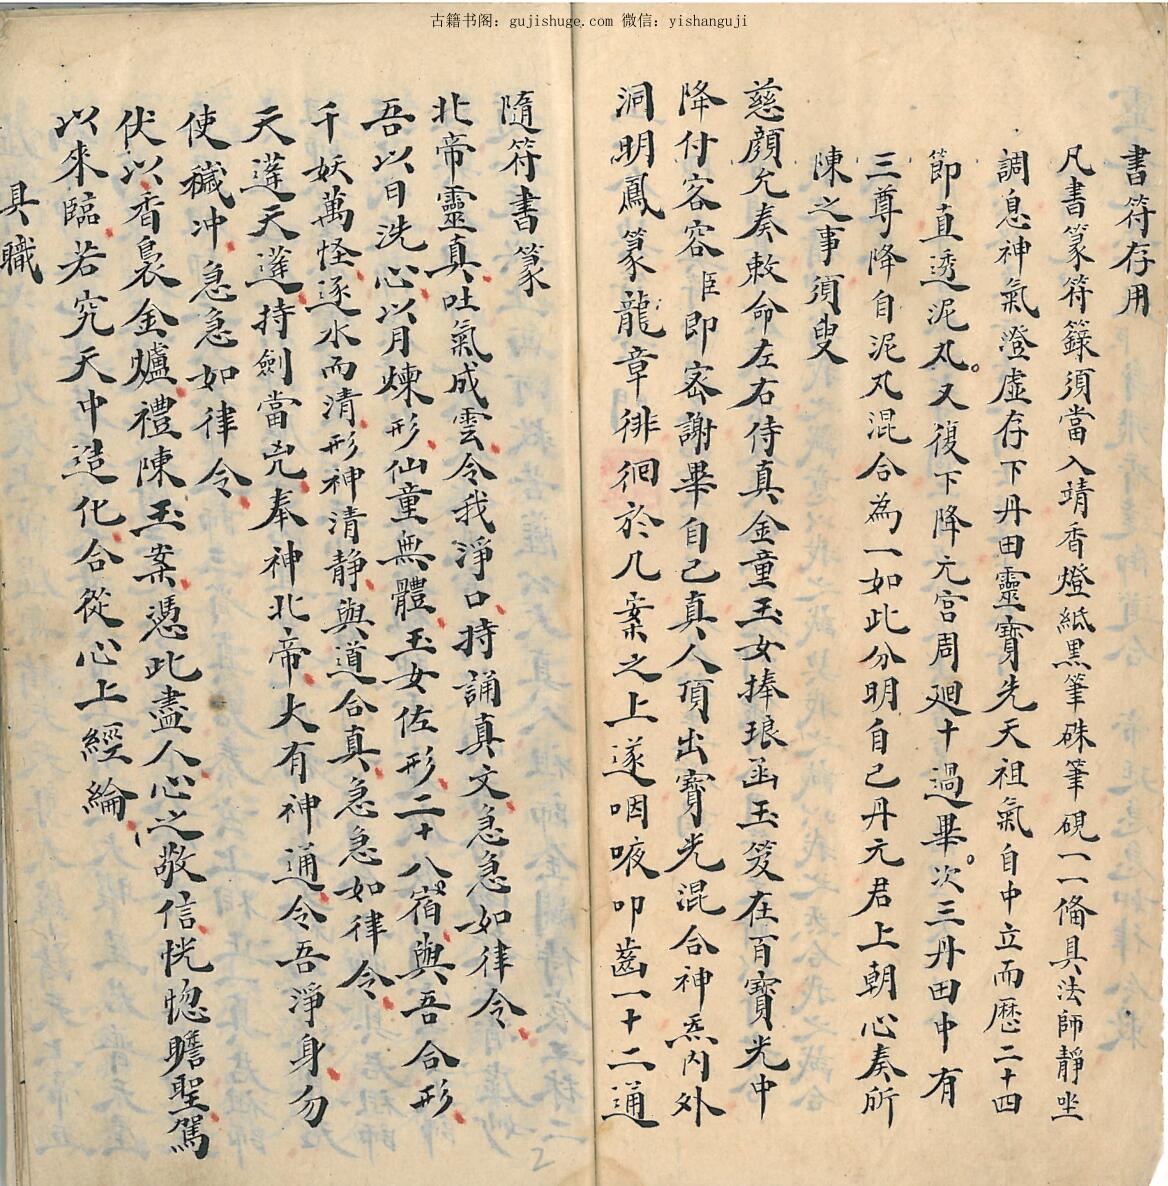 古籍书阁：gujishuge.com 微信：yishanguji
書符存用
凡書篆符籙須當入靖香燈紙黑筆硃筆硯一一俻具法師靜坐
調息神氣澄虛存下丹田靈寶先天祖氣自中立而歷二十四
節直透泥丸又復下降元宮周廻十過畢次三丹田中有
三尊降自泥丸混合為一如此分明自己丹元君上朝心奏所
陳之事須臾
慈顏允奏敕命左右侍真金童玉女捧琅函玉笈在百寶光中
降付容容臣即密謝畢自己真人頂出寶光混合神炁內外
洞明鳳篆龍章徘徊於几案之上遂咽液叩齒一十二通
隨符書篆
北帝靈真吐氣成雲令我淨口時誦真文急急如律令
吾以日洗心以月煉形仙童無體玉女佐形二十八宿與吾合形
千妖萬怪逐水而清形神清静與道合真急急如律令
天蓬天蓬持劍當兇奉神北帝大有神通令吾淨身勿
使穢冲急急如律令
伏以香裊金爐禮陳玉案憑此盡人心之敬信恍惚瞻聖駕
以來臨若究天中造化合從心上經綸
具職
2